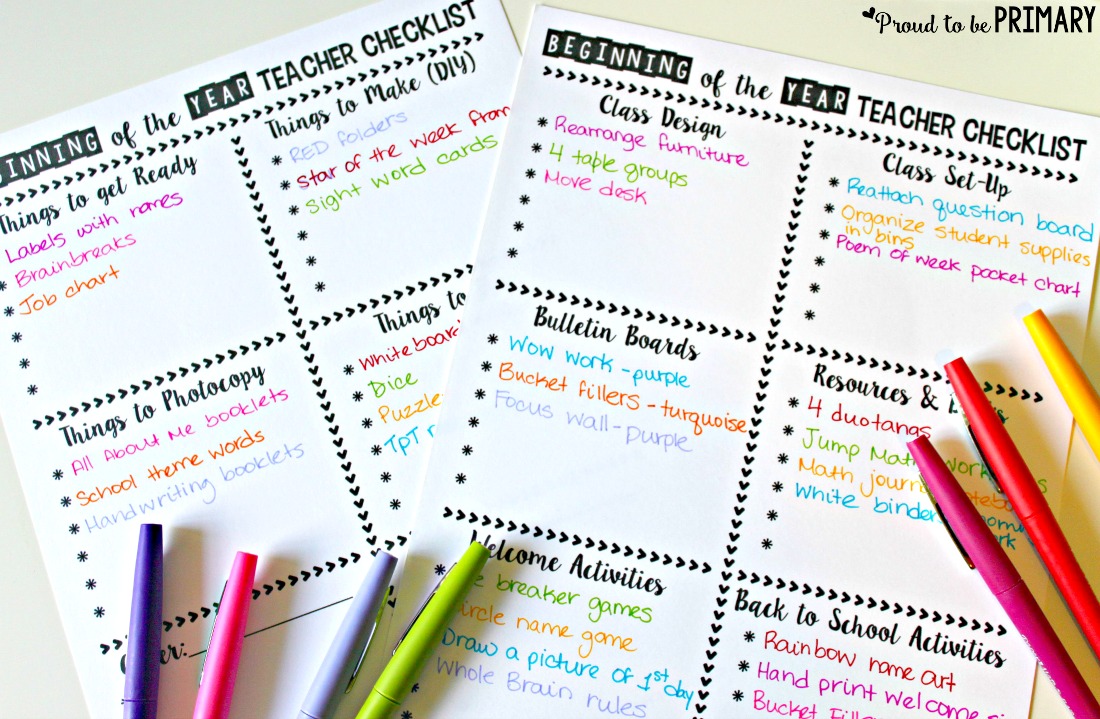 Proud to be PRIMARY
INNING of the YEAR TEACHER CHECKLIST
Things to get Ready
Labels with names
* Brainbreaks
* Job chart
*
*
*
Things to Make (DIY)
* RED folders
* Star of the week from
* Sight word cards
*
*
*
Things to Photocopy
* All About Me booklets
* School theme words
* Handwriting booklets
*
*
*
Things to
* Whiteboar
* Dice
* Puzzle
* TpT
*
*
BEGINNING of the YEAR TEACHER CHECKLIST
Class Design
* Rearrange furniture
* 4 table groups
* Move desk
*
*
*
Class Set-Up
* Reattach question board
* Organize student supplies
in bins
* Poem of week pocket chart
*
*
*
Bulletin Boards
* Wow work - purple
* Bucket fillers - turquoise
* Focus wall - purple
*
*
*
Resources &
* 4 duotangs
* Jump Math work
* Math journ
* White binder
*
*
Welcome Activities
* breaker games
circle name game
Draw a picture of 1st day
Whole Brain rules
Back to School Activities
* Rainbow name art
* Hand print welcome
* Bucket Fille